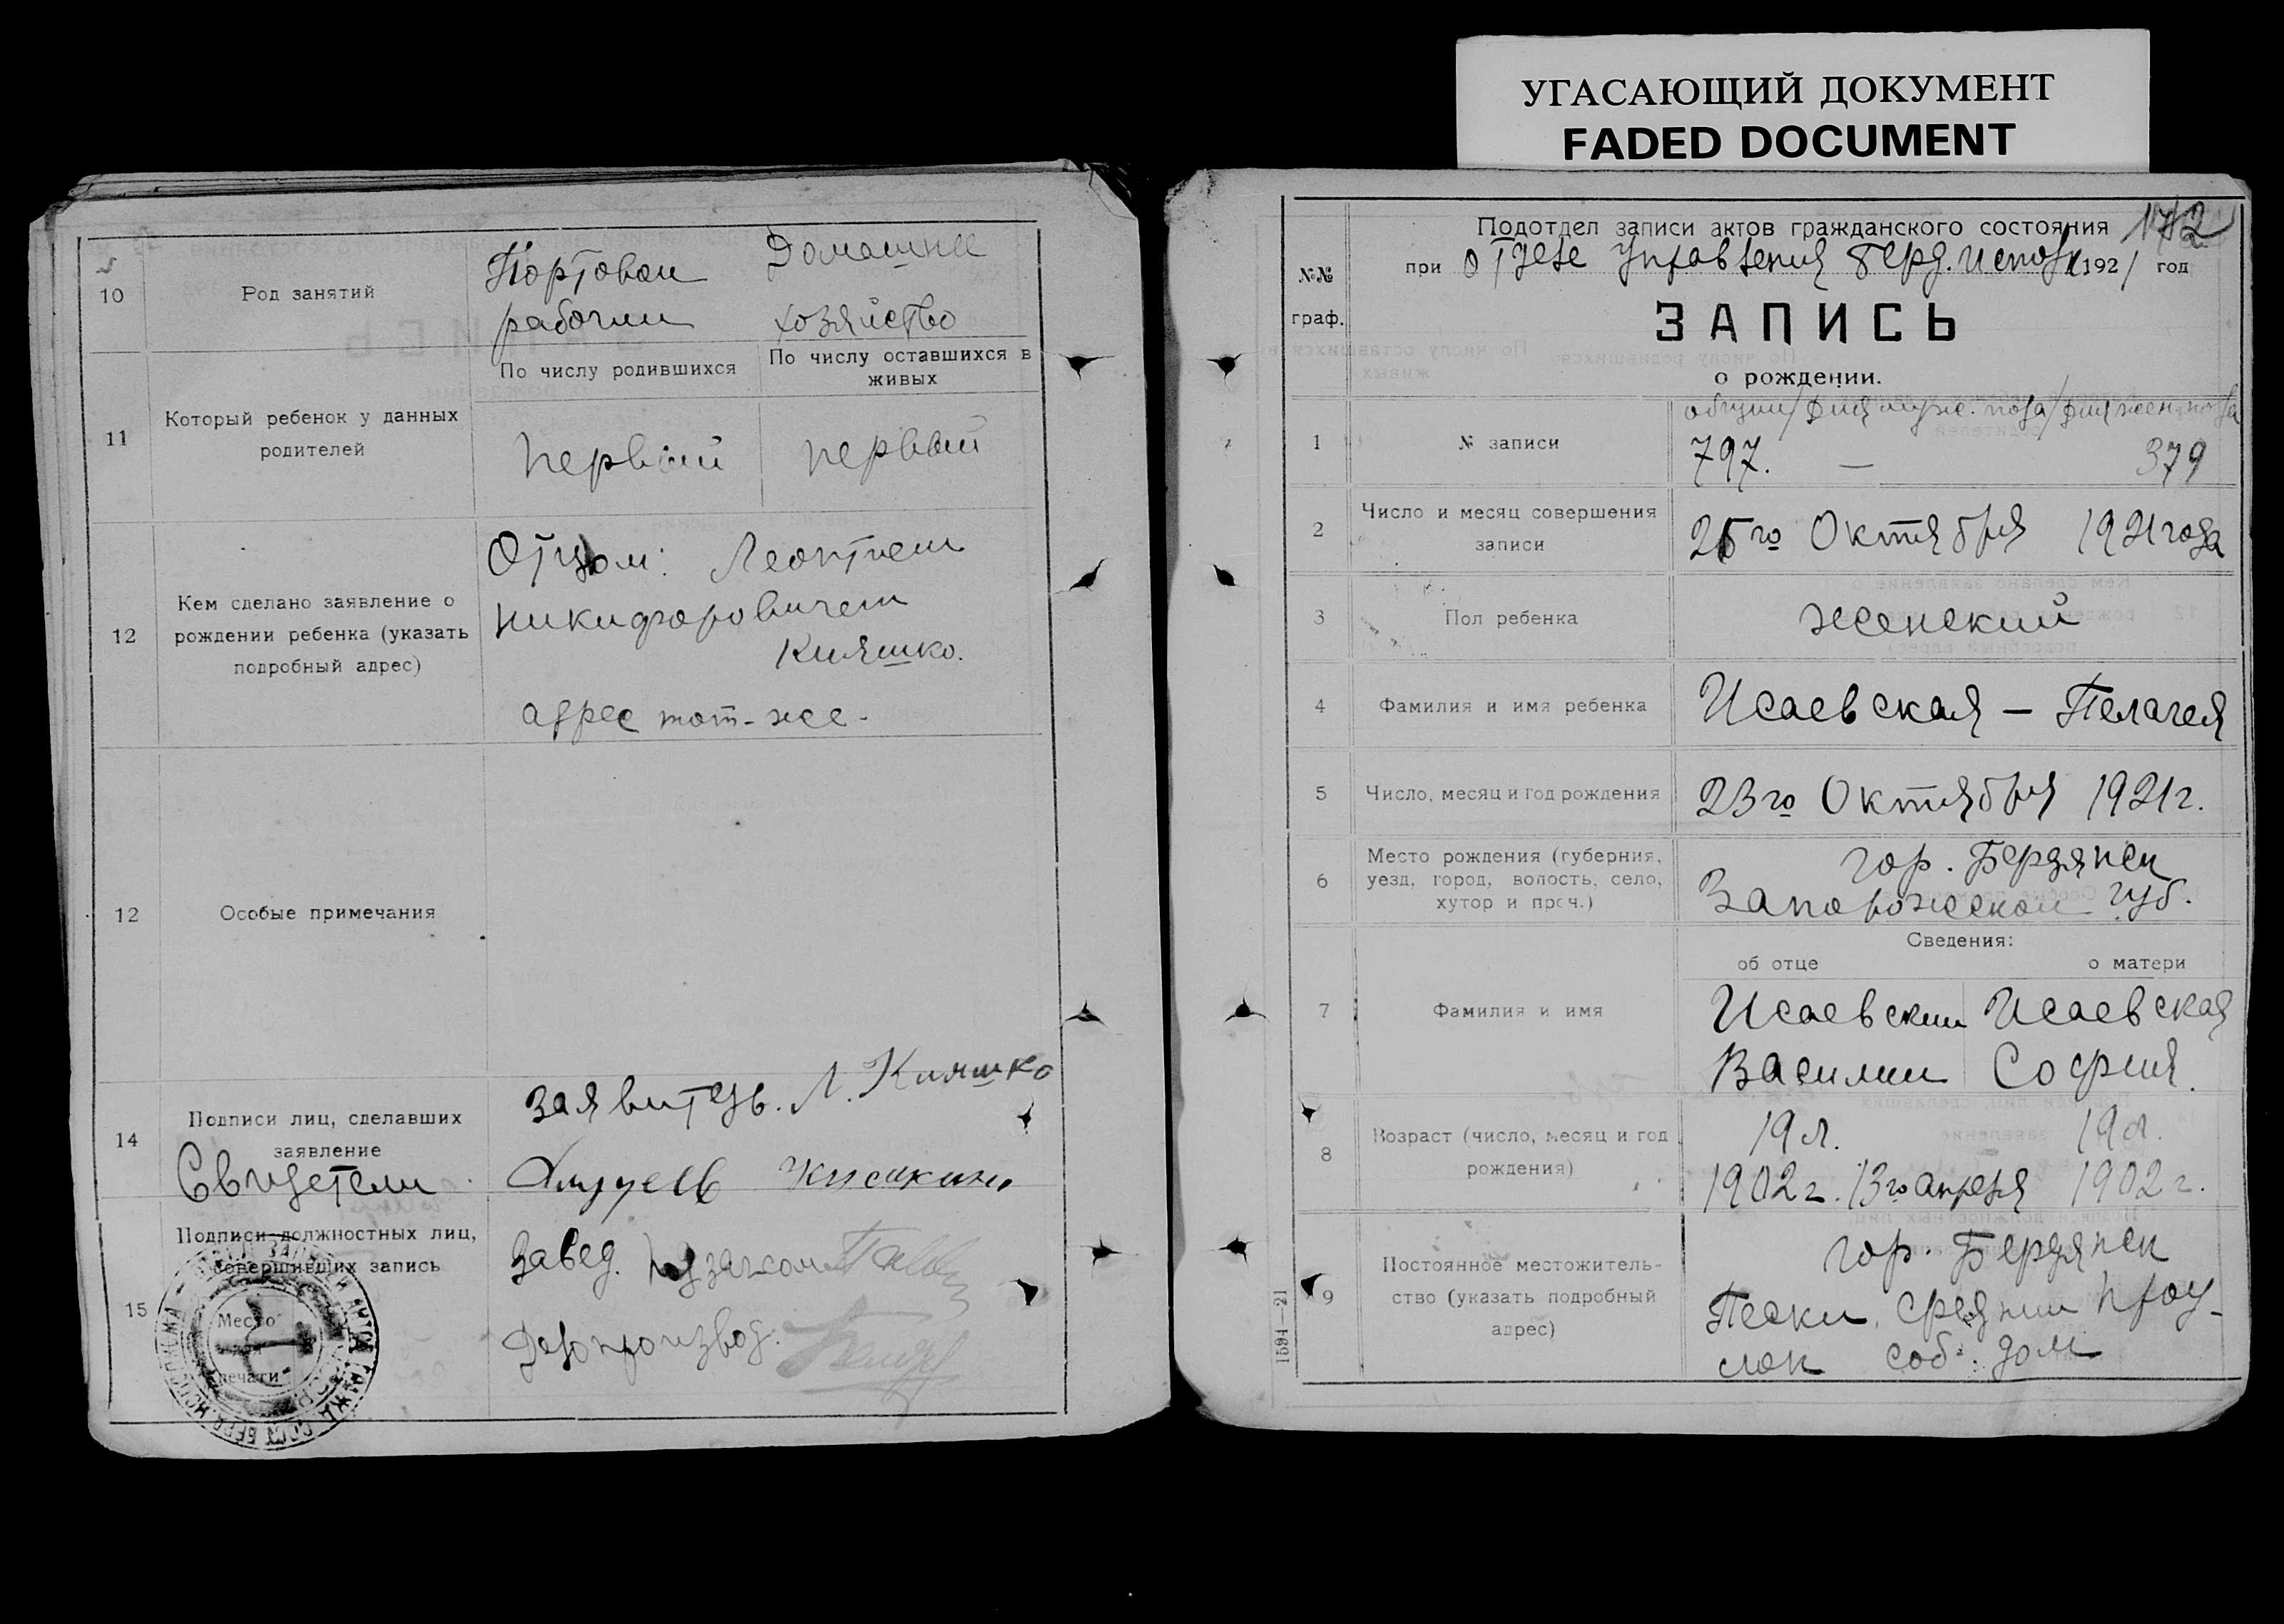 УГАСАЮЩИЙ ДОКУМЕНТ
FADED DOCUMENT
10
Род занятий
Портовои
рабочии
Домашнее
хозяйство
11
Который ребенок у данных
родителей
По числу родившихся
По числу оставшихся в
живых
первый
первый
12
Кем сделано заявление о
рождении ребенка (указать
подробный адрес)
Отцом: Леонтием
Никифоровичем
Кияшко.
адрес тот-же.
12
Особые примечания
14
Подписи лиц, сделавших
заявление
Свидетели
заявитель. Л. Кияшко
15
Подписи должностных лиц,
совершивших запись
Место
печати
Завед.
Делопроизвод.
172
№№
граф.
Подотдел записи актов гражданского состояния
при отделе Управления Берд. Исполк 1921 год
ЗАПИСЬ
о рождении.
1
№ записи
общии/для муже. пола/для жен. пола
797. — 379
2
Число и месяц совершения
записи
го Октября 1921 года
3
Пол ребенка
женский
4
Фамилия и имя ребенка
Исаевская — Пелагея
5
Число, месяц и год рождения
23го Октября 1921г.
6
Место рождения (губерния,
уезд, город, волость, село,
хутор и проч.)
гор. Бердянск
Запорожской губ.
Сведения:
об отце
о матери
7
Фамилия и имя
Исаевскии
Василии
Исаевская
София.
8
Возраст (число, месяц и год
рождения)
19 л.
1902 г. 13го апреля
19 л.
1902 г.
9
Постоянное местожитель-
ство (указать подробный
адрес)
гор. Бердянск
Пески. Среднии проу-
лок соб. дом
1594—21